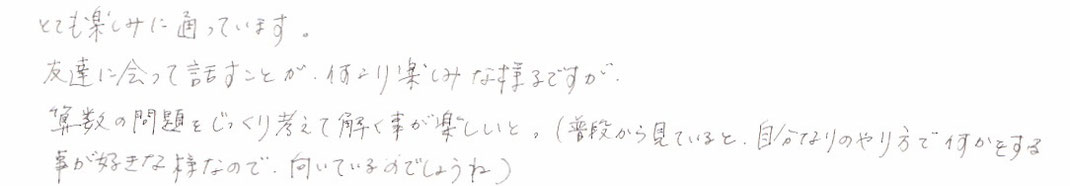 とても楽しみに通っています。
友達に会って話すことが、何より楽しみな様子ですが、
算数の問題をじっくり考えて解く事が楽しいと。(普段から見ていると、自分なりのやり方で何かをする
事が好きな様なので、向いているのでしょうね)